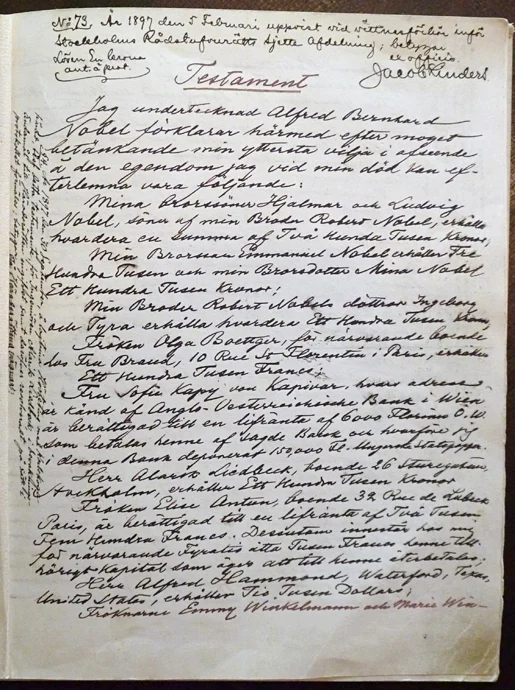 No 73. År 1897 den 5 Februari uppvist vid vittnesförhör inför
Stockholms Rådstufvurätts sjette Afdelning; betygar
Lösen En krona
ex officio.
Jacob Lüders
Testament
Jag undertecknad Alfred Bernhard
Nobel förklarar härmed efter moget
betänkande min yttersta vilja i afseende
å den egendom jag vid min död kan ef-
terlemna vara följande:
Mina brorssöner Hjalmar och Ludvig
Nobel, söner af min Broder Robert Nobel, erhålla
hvardera en summa af Två Hundra Tusen Kronor;
Min Brorsson Emmanuel Nobel erhåller Tre
Hundra Tusen och min Brorsdotter Mina Nobel
Ett Hundra Tusen Kronor;
Min Broder Robert Nobels döttrar Ingeborg
och Tyra erhålla hvardera Ett Hundra Tusen Kronor;
Fröken Olga Boettger, för närvarande boende
hos Fru Brand, 10 Rue St Florentin i Paris, erhåller
Ett Hundra Tusen Francs;
Fru Sofie Kapy von Kapivar, hvars adress
är känd af Anglo-Oesterreichische Bank i Wien
är berättigad till en lifränta af 6000 Florins Ö.W.
som betalas henne af sagde Bank och hvarföre jag
i denna Bank deponerat 150,000 Fl. i Ungerska Statspapper.
Herr Alarik Liedbeck, boende 26 Sturegatan,
Stockholm, erhåller Ett Hundra Tusen Kronor
Fröken Elise Antun, boende 32 Rue de Lubeck
Paris, är berättigad till en lifränta af Två Tusen
Fem Hundra Francs. Dessutom innestår hos mig
för närvarande Fyratio åtta Tusen Francs henne till-
hörigt kapital som äger att till henne återbetalas;
Herr Alfred Hammond, Waterford, Texas,
United States, erhåller Tio Tusen Dollars;
Fröknarne Emmy Winkelmann och Marie Win-